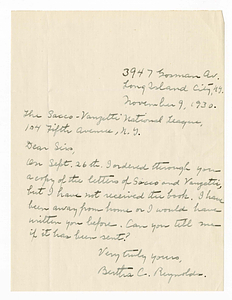 3947 Gosman Av.
Long Island City, N.Y.
November 9, 1930.
The Sacco-Vanzetti National League,
104 Fifth Avenue, N.Y.
Dear Sirs,
On Sept. 26th I ordered through you
a copy of the letters of Sacco and Vanzetti,
but I have not received the book. I have
been away from home or I would have
written you before. Can you tell me
if it has been sent?
Very truly yours,
Bertha C. Reynolds.